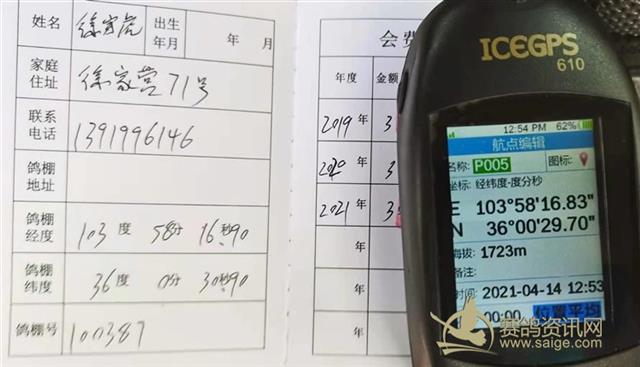 姓名 徐家虎 出生年月 年 月
家庭住址 徐家营71号
联系电话 1391996146
鸽棚地址
鸽棚经度 103度 58分 16秒90
鸽棚纬度 36度 0分 30秒90
鸽棚号 100387
会费
年度 金额
2019年 3
2020年 3
2021年 3
年
年
年
ICEGPS
610
12:54 PM 62%
航点编辑
名称: P005 图标:
坐标: 经纬度-度分秒
E 103°58'16.83"
N 36°00'29.70"
海拔: 1723m
备注:
时间: 2021-04-14 12:53
:00:00 位置平均
赛鸽资讯网
www.saige.com